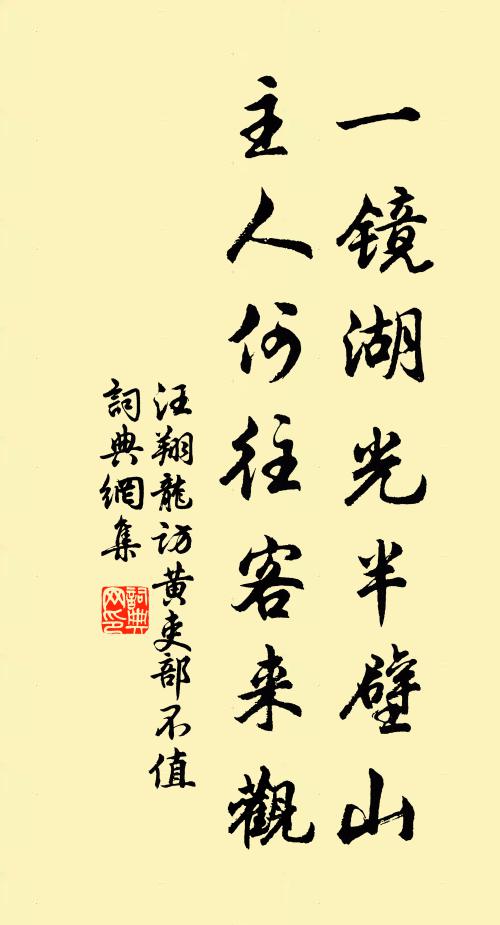 一镜湖光半壁山
主人何往客来觀
汪翔龍访黄吏部不值
詞典網集
詞典
网印